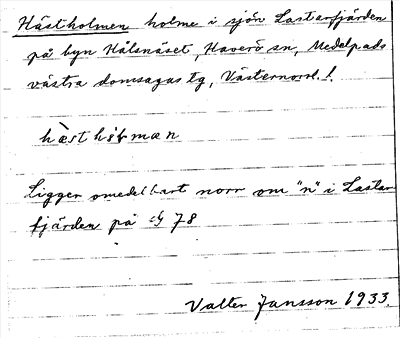 Hästholmen holme i sjön Lastarfjärden
på byn Hålsnäset, Haverö sn, Medelpads
västra domsagas tg, Västernorrl. l.
Ligger omedelbart norr om "n" i Lastar
fjärden på 78
Valter Jansson 1933.